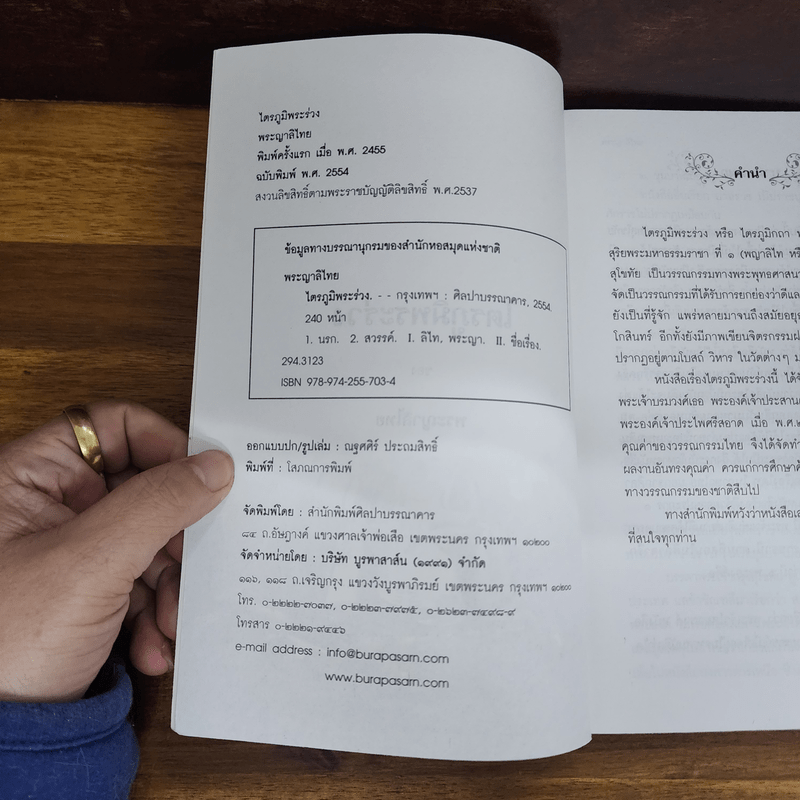 ไตรภูมิพระร่วง
พระญาลิไทย
พิมพ์ครั้งแรก เมื่อ พ.ศ. 2455
ฉบับพิมพ์ พ.ศ. 2554
สงวนลิขสิทธิ์ตามพระราชบัญญัติลิขสิทธิ์ พ.ศ.2537
ข้อมูลทางบรรณานุกรมของสำนักหอสมุดแห่งชาติ
พระญาลิไทย
ไตรภูมิพระร่วง. - - กรุงเทพฯ : ศิลปาบรรณาคาร, 2554.
240 หน้า
1. นรก. 2. สวรรค์. I. ลิไท, พระญา. II. ชื่อเรื่อง.
294.3123
ISBN 978-974-255-703-4
ออกแบบปก/รูปเล่ม : ณฐศศิร์ ประถมสิทธิ์
พิมพ์ที่ : โสภณการพิมพ์
จัดพิมพ์โดย : สำนักพิมพ์ศิลปาบรรณาคาร
๘๔ ถ.อัษฎางค์ แขวงศาลเจ้าพ่อเสือ เขตพระนคร กรุงเทพฯ ๑๐๒๐๐
จัดจำหน่ายโดย : บริษัท บูรพาสาส์น (๑๙๙๑) จำกัด
๑๑๖, ๑๑๘ ถ.เจริญกรุง แขวงวังบูรพาภิรมย์ เขตพระนคร กรุงเทพฯ ๑๐๒๐๐
โทร. ๐-๒๒๒๒-๗๐๓๗, ๐-๒๒๒๓-๗๙๓๕, ๐-๒๖๒๓-๗๔๙๘-๙
โทรสาร ๐-๒๒๒๑-๙๔๔๖
e-mail address : info@burapasarn.com
www.burapasarn.com
คำนำ
ไตรภูมิพระร่วง หรือ ไตรภูมิกถา
สุริยพระมหาธรรมราชา ที่ ๑ (พญาลิไท
สุโขทัย เป็นวรรณกรรมทางพระพุทธศาสนา
จัดเป็นวรรณกรรมที่ได้รับการยกย่องว่าดีและ
ยังเป็นที่รู้จัก แพร่หลายมาจนถึงสมัยอยุธ
โกสินทร์ อีกทั้งยังมีภาพเขียนจิตรกรรมฝ
ปรากฏอยู่ตามโบสถ์ วิหาร ในวัดต่างๆ
หนังสือเรื่องไตรภูมิพระร่วงนี้ ได้จั
พระเจ้าบรมวงศ์เธอ พระองค์เจ้าประสาน
พระองค์เจ้าประไพศรีสอาด เมื่อ พ.ศ.๒
คุณค่าของวรรณกรรมไทย จึงได้จัดทำ
ผลงานอันทรงคุณค่า ควรแก่การศึกษาค้
ทางวรรณกรรมของชาติสืบไป
ทางสำนักพิมพ์หวังว่าหนังสือเล
ที่สนใจทุกท่าน